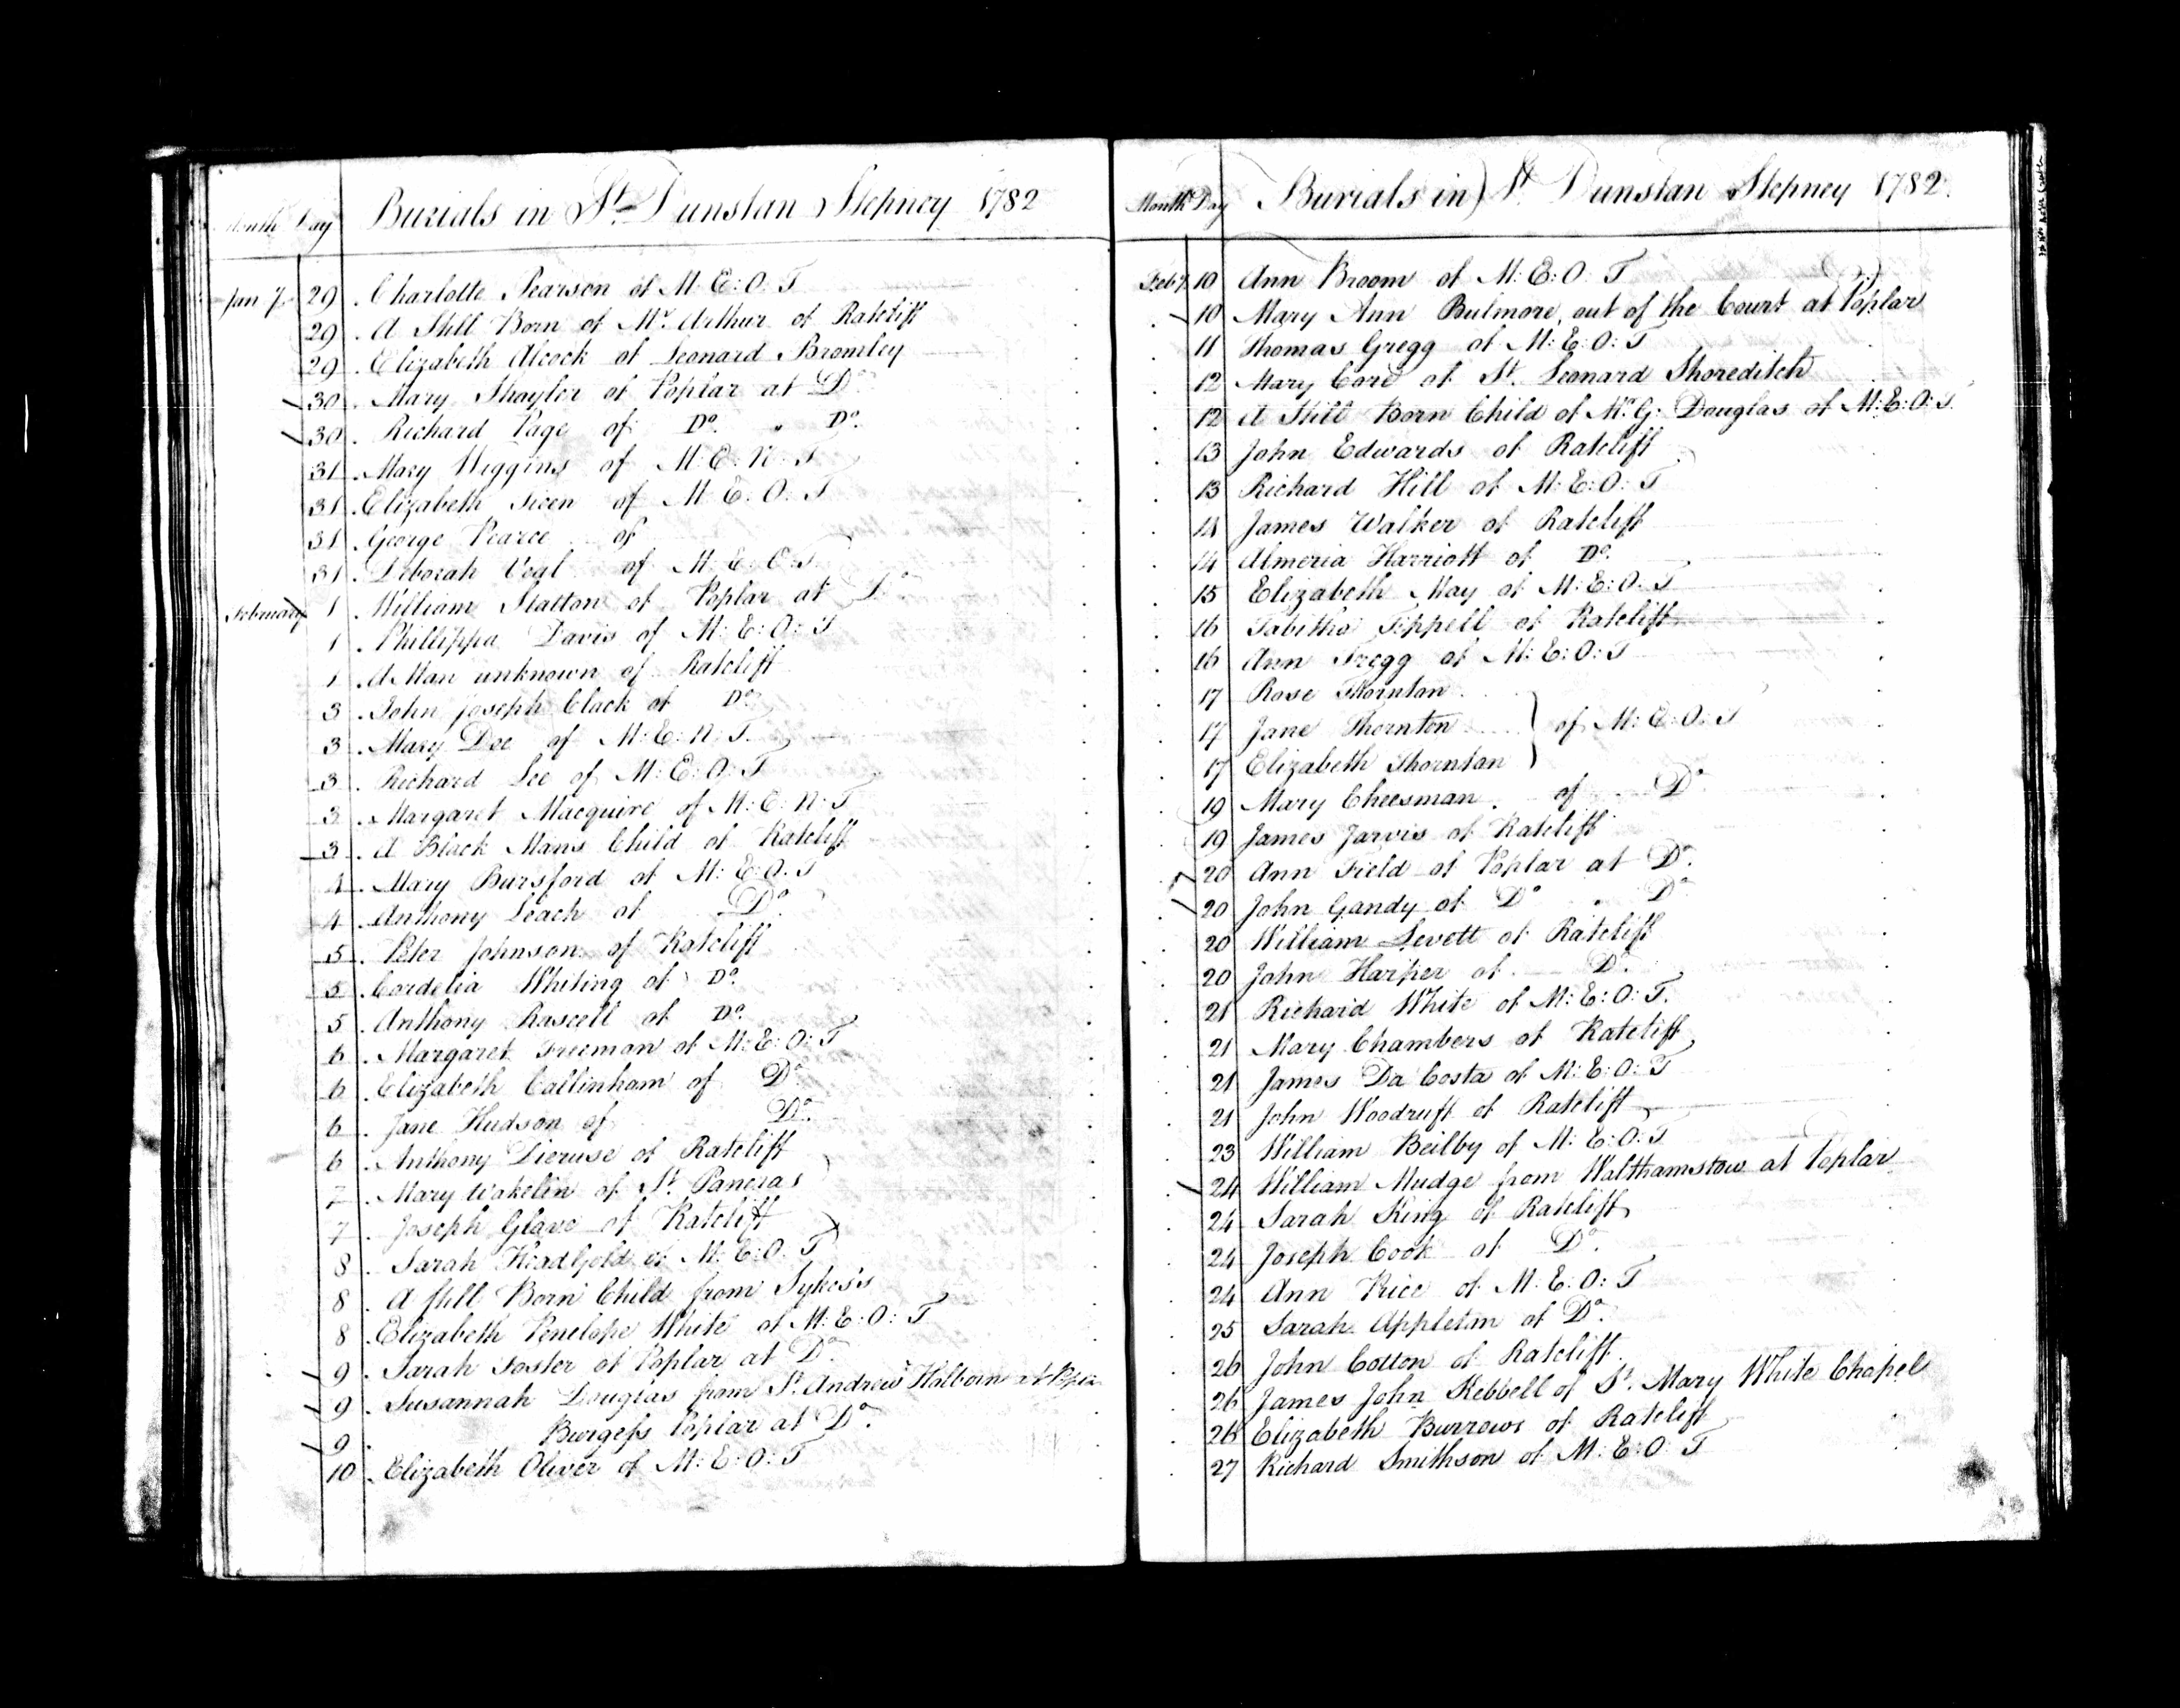 Month Day Burials in St. Dunstan Stepney 1782
Jan y. 29 Charlotte Pearson of M: E: O: T
29 A Still Born of Mr. Arthur of Ratcliff
29 Elizabeth Alcock of Leonard Bromley
30 Mary Shayler of Poplar at Do.
30 Richard Page of Do. Do.
31 Mary Wiggins of M: E: N: T
31 Elizabeth of M: E: O: T
31 George Pearce of
31 Deborah of M: E: O: T
February 1 William Statton of Poplar at Do.
1 Phillippa Davis of M: E: O: T
1 A Man unknown of Ratcliff
3 John Joseph Clack of Do.
3 Mary Dee of M: E: N: T
3 Richard Lee of M: E: O: T
3 Margaret Macquire of M: E: N: T
3 A Black Mans Child of Ratcliff
4 Mary Bursford of M: E: O: T
4 Anthony Leach of Do.
5 Peter Johnson of Ratcliff
5 Cordelia Whiting of Do.
5 Anthony Rascell of Do.
6 Margaret Freeman of M: E: O: T
6 Elizabeth Callinham of Do.
6 Jane Hudson of Do.
6 Anthony Dieruse of Ratcliff
7 Mary Wakelin of St. Pancras
7 Joseph Glave of Ratcliff
8 Sarah Headgold of M: E: O: T
8 A Still Born Child from Sykes's
8 Elizabeth Penelope White of M: E: O: T
9 Sarah Foster of Poplar at Do.
9 Susannah Douglas from St. Andrew Holborn at
9 Burgess Poplar at Do.
10 Elizabeth Oliver of M: E: O: T
Month Day Burials in St. Dunstan Stepney 1782.
Feb y. 10 Ann Broom of M: E: O: T
10 Mary Ann Bulmore, out of the Court at Poplar
11 Thomas Gregg of M: E: O: T
12 Mary Core of St. Leonard Shoreditch
12 A Still Born Child of Mr. G. Douglas of M: E: O: T.
13 John Edwards of Ratcliff
13 Richard Hill of M: E: O: T
14 James Walker of Ratcliff
14 Almeria Harriott of Do.
15 Elizabeth May of M: E: O: T
16 Tabitha Tippell of Ratcliff
16 Ann Gregg of M: E: O: T
17 Rose Thornton
17 Jane Thornton } of M: E: O: T
17 Elizabeth Thornton
19 Mary Cheesman of Do
19 James Jarvis of Ratcliff
20 Ann Field of Poplar at Do.
20 John Gandy of Do Do
20 William Levett of Ratcliff
20 John Harper of Do.
21 Richard White of M: E: O: T.
21 Mary Chambers of Ratcliff
21 James Da Costa of M: E: O: T
21 John Woodruff of Ratcliff
23 William Beilby of M: E: O: T
24 William Mudge from Walthamstow at Poplar
24 Sarah King of Ratcliff
24 Joseph Cook of Do.
24 Ann Price of M: E: O: T
25 Sarah Appleton of Do.
26 John Cotton of Ratcliff
26 James John Kebbell of St. Mary White Chapel
26 Elizabeth Burrows of Ratcliff
27 Richard Smithson of M: E: O: T